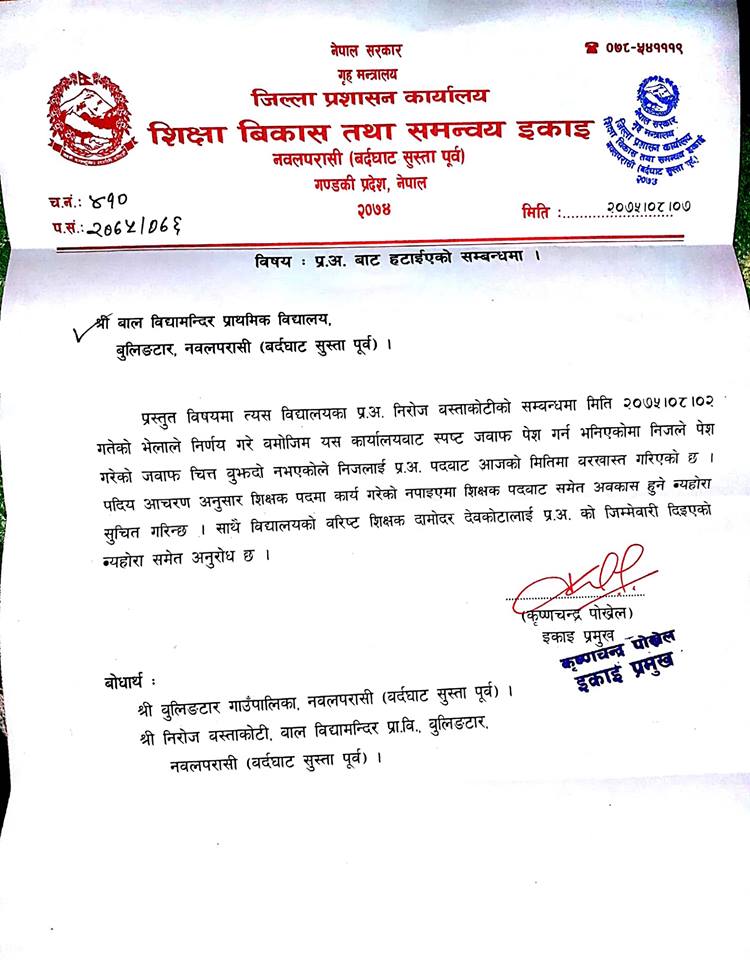 नेपाल सरकार
☎ ०७८-५४१११९
गृह मन्त्रालय
जिल्ला प्रशासन कार्यालय
शिक्षा बिकास तथा समन्वय इकाइ
नवलपरासी (बर्दघाट सुस्ता पूर्व)
गण्डकी प्रदेश, नेपाल
२०७४
नेपाल सरकार
गृह मन्त्रालय
जिल्ला प्रशासन कार्यालय
शिक्षा बिकास तथा समन्वय इकाई
नवलपरासी (बर्दघाट सुस्ता पूर्व)
२०७३
च.नं.: ४१०
प.सं.: २०७५/०७६
मिति :.......................... २०७५।०८।०७
विषय : प्र.अ. बाट हटाईएको सम्बन्धमा ।
श्री बाल विद्यामन्दिर प्राथमिक विद्यालय,
बुलिङटार, नवलपरासी (बर्दघाट सुस्ता पूर्व) ।
प्रस्तुत विषयमा त्यस विद्यालयका प्र.अ. निरोज वस्ताकोटीको सम्बन्धमा मिति २०७५।०८।०२
गतेको भेलाले निर्णय गरे वमोजिम यस कार्यालयवाट स्पष्ट जवाफ पेश गर्न भनिएकोमा निजले पेश
गरेको जवाफ चित्त वुझदो नभएकोले निजलाई प्र.अ. पदवाट आजको मितिमा वरखास्त गरिएको छ ।
पदिय आचरण अनुसार शिक्षक पदमा कार्य गरेको नपाइएमा शिक्षक पदवाट समेत अवकास हुने व्यहोरा
सुचित गरिन्छ । साथै विद्यालयको वरिष्ट शिक्षक दामोदर देवकोटालाई प्र.अ. को जिम्मेवारी दिइएको
व्यहोरा समेत अनुरोध छ ।
(कृष्णचन्द्र पोख्रेल)
इकाइ प्रमुख
कृष्णचन्द्र पोख्रेल
इकाई प्रमुख
बोधार्थ :
श्री वुलिङटार गाउँपालिका, नवलपरासी (बर्दघाट सुस्ता पूर्व) ।
श्री निरोज वस्ताकोटी, वाल विद्यामन्दिर प्रा.वि., वुलिङटार,
नवलपरासी (बर्दघाट सुस्ता पूर्व) ।